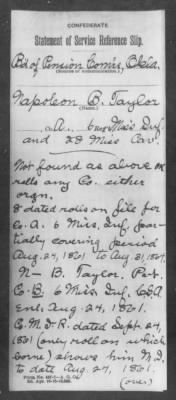 CONFEDERATE
Statement of Service Reference Slip.
Bd. of Pension Com'rs, Okla.
(Source of communication.)
Napoleon B. Taylor
(Name.)
A. 6 Miss Inf
and 28 Miss Cav.
Not found as above on
rolls any Co. either
orgn.
8 dated rolls on file for
Co. A. 6 Miss. Inf. par-
tially covering period
Aug. 24, 1861 to Aug 31, 1864.
N— B. Taylor. Pvt.
Co. B. 6 Miss. Inf. C.S.A.
Enl. Aug. 24, 1861.
C. M. & R. dated Sept. 24,
1861 (only roll on which
borne) shows him N.D.
to date Aug. 27, 1861.
(over)